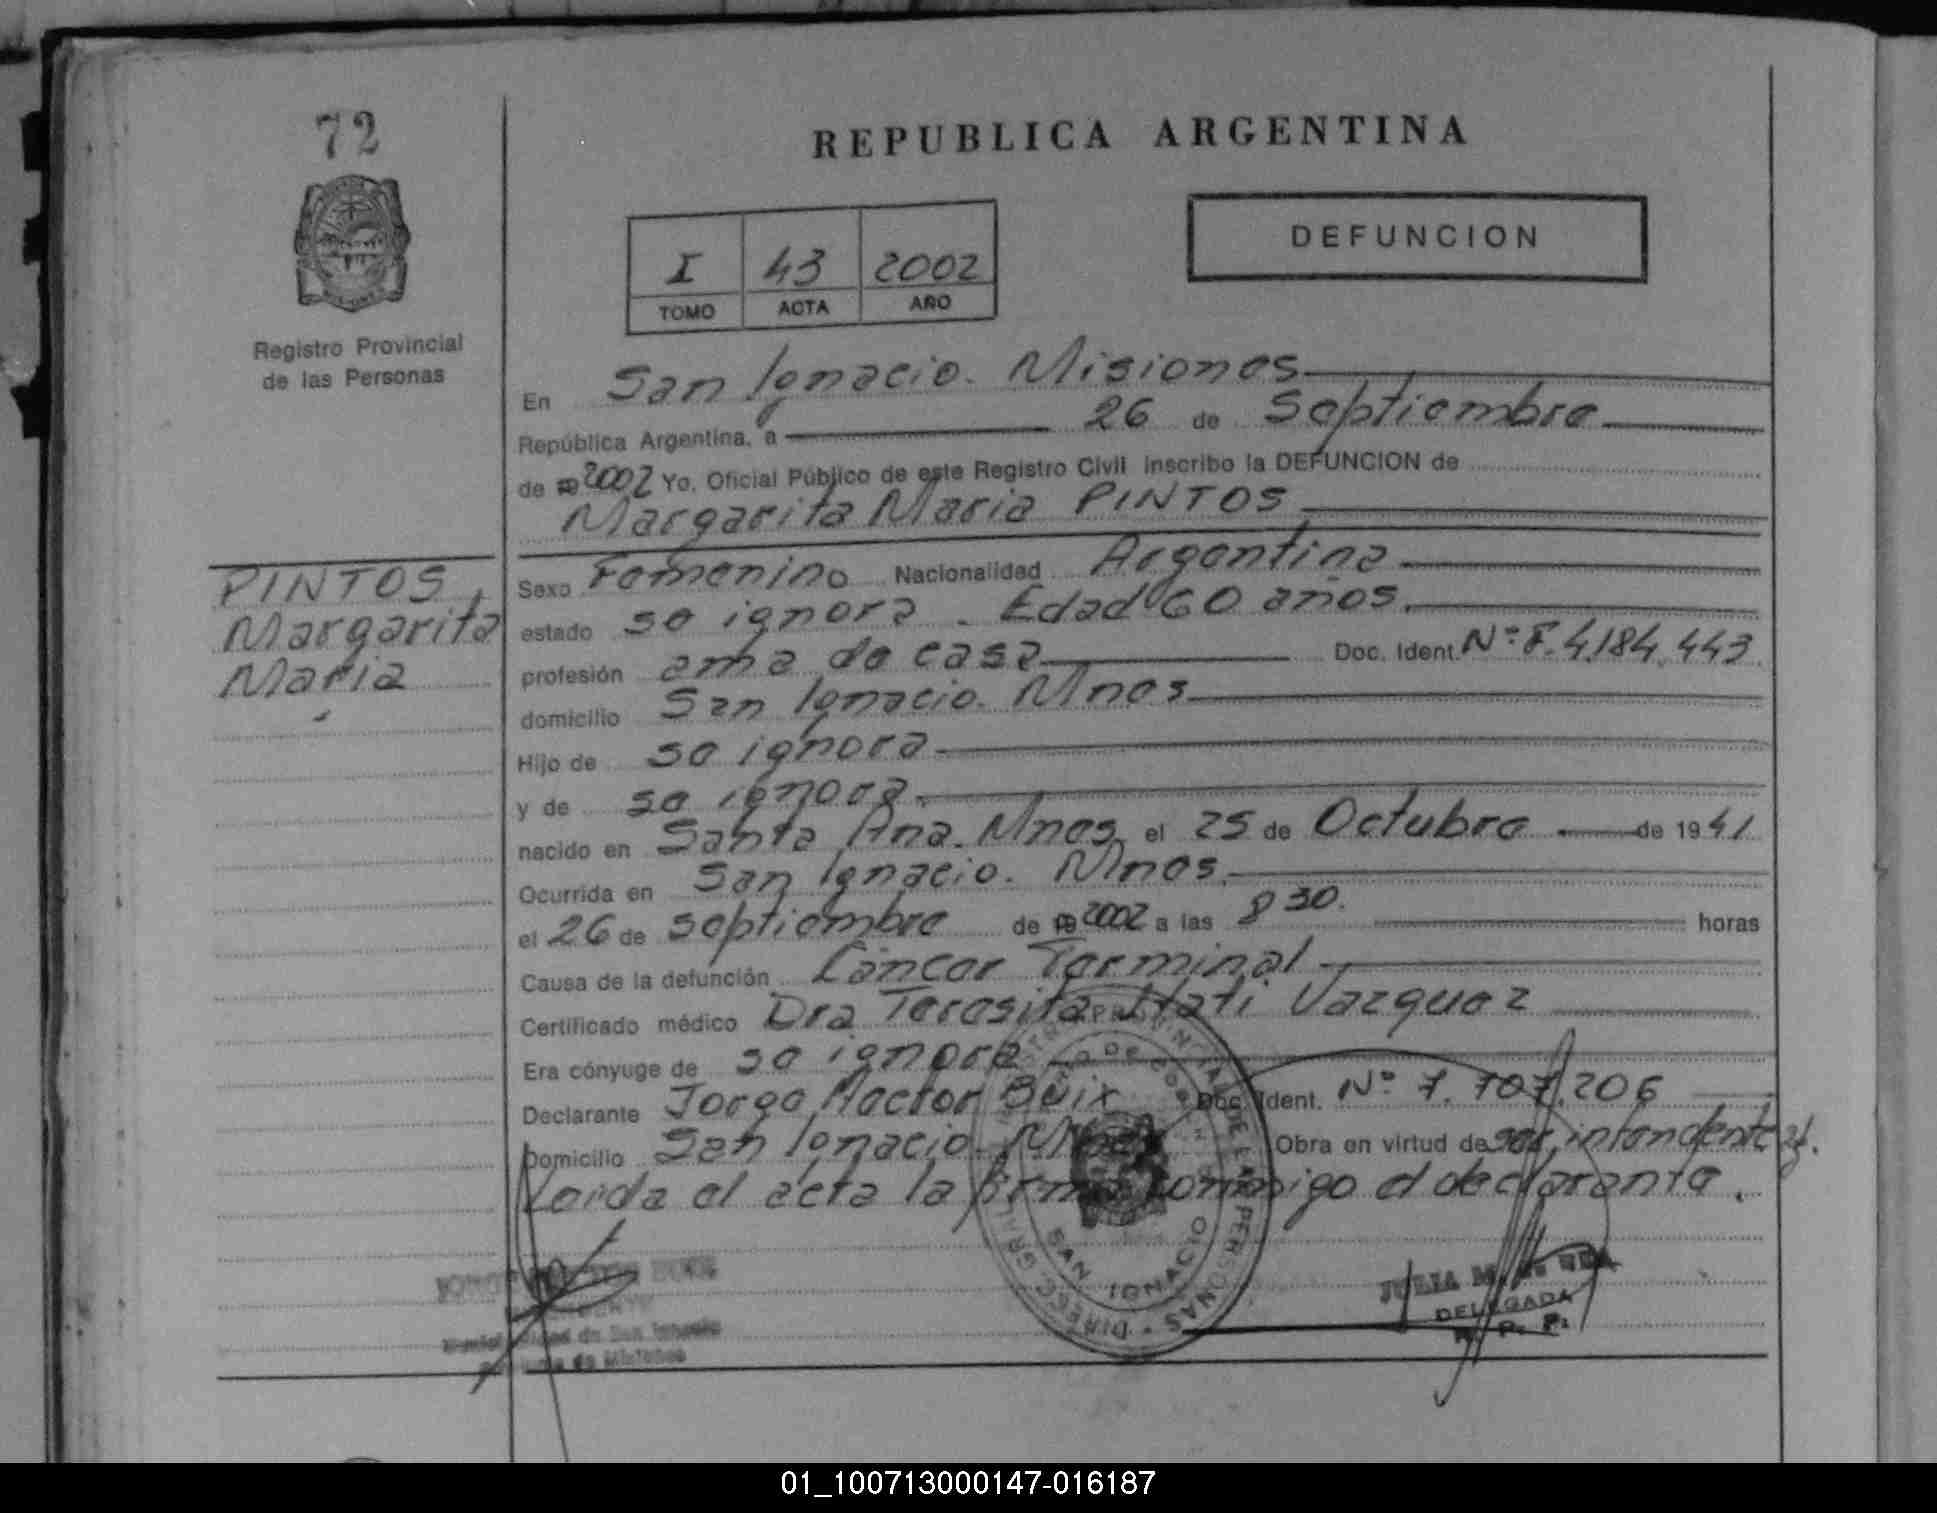 72
REPUBLICA ARGENTINA
DEFUNCION
I 43 2002
TOMO ACTA AÑO
Registro Provincial
de las Personas
En San Ignacio. Misiones
República Argentina, a 26 de Septiembre
de 2002 Yo, Oficial Público de este Registro Civil inscribo la DEFUNCION de
Margarita Maria PINTOS
PINTOS,
Margarita
Maria
Sexo Femenino Nacionalidad Argentina
estado se ignora. Edad 60 años.
profesión ama de casa Doc. Ident. Nº F. 4.184.443
domicilio San Ignacio. Mnes
Hijo de se ignora
y de se ignora
nacido en Santa Ana. Mnes. el 25 de Octubre de 1941
Ocurrida en San Ignacio. Mnes.
el 26 de septiembre de 2002 a las 8 30. horas
Causa de la defunción Cáncer Terminal
Certificado médico Dra Teresita Itati Vazquez
Era cónyuge de se ignora
Declarante Jorge Hector Buix Doc. Ident. Nº 7.707.206
Domicilio San Ignacio. Obra en virtud de ser intendente
Leida el acta la firma conmigo el declarante.
DIRECC. GRAL. REGISTRO PROVINCIAL DE LAS PERSONAS
SAN IGNACIO
JULIA M.
DELEGADA
R. P. P.
de San Ignacio
de Misiones
01_100713000147-016187